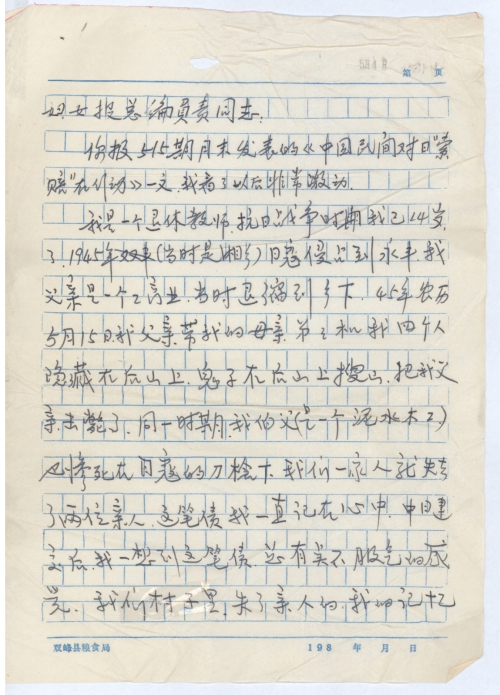 第 页
妇女报总编负责同志:
你报515期月末发表的《中国民间对日索
赔"在行动》一文,我看了以后非常激动.
我是一个退休教师,抗日战争时期我已14岁
了,1945年(当时是湘乡)日寇侵占到永丰我
父亲是一个工商业,当时退缩到乡下.45年农历
5月15日我父亲,带我的母亲 弟弟和我四个人
隐藏在后山上,鬼子在后山上搜山,把我父
亲击毙了.同一时期,我伯父(是一个泥水木工)
惨死在日寇的刀枪下.我们一家人就失去
了两位亲人.这笔债我一直记在心中.中日建
交后,我一想到这笔债,总有点不服气的感
觉.我们村子里,失了亲人的,我的记忆
双峰县粮食局 198 年 月 日